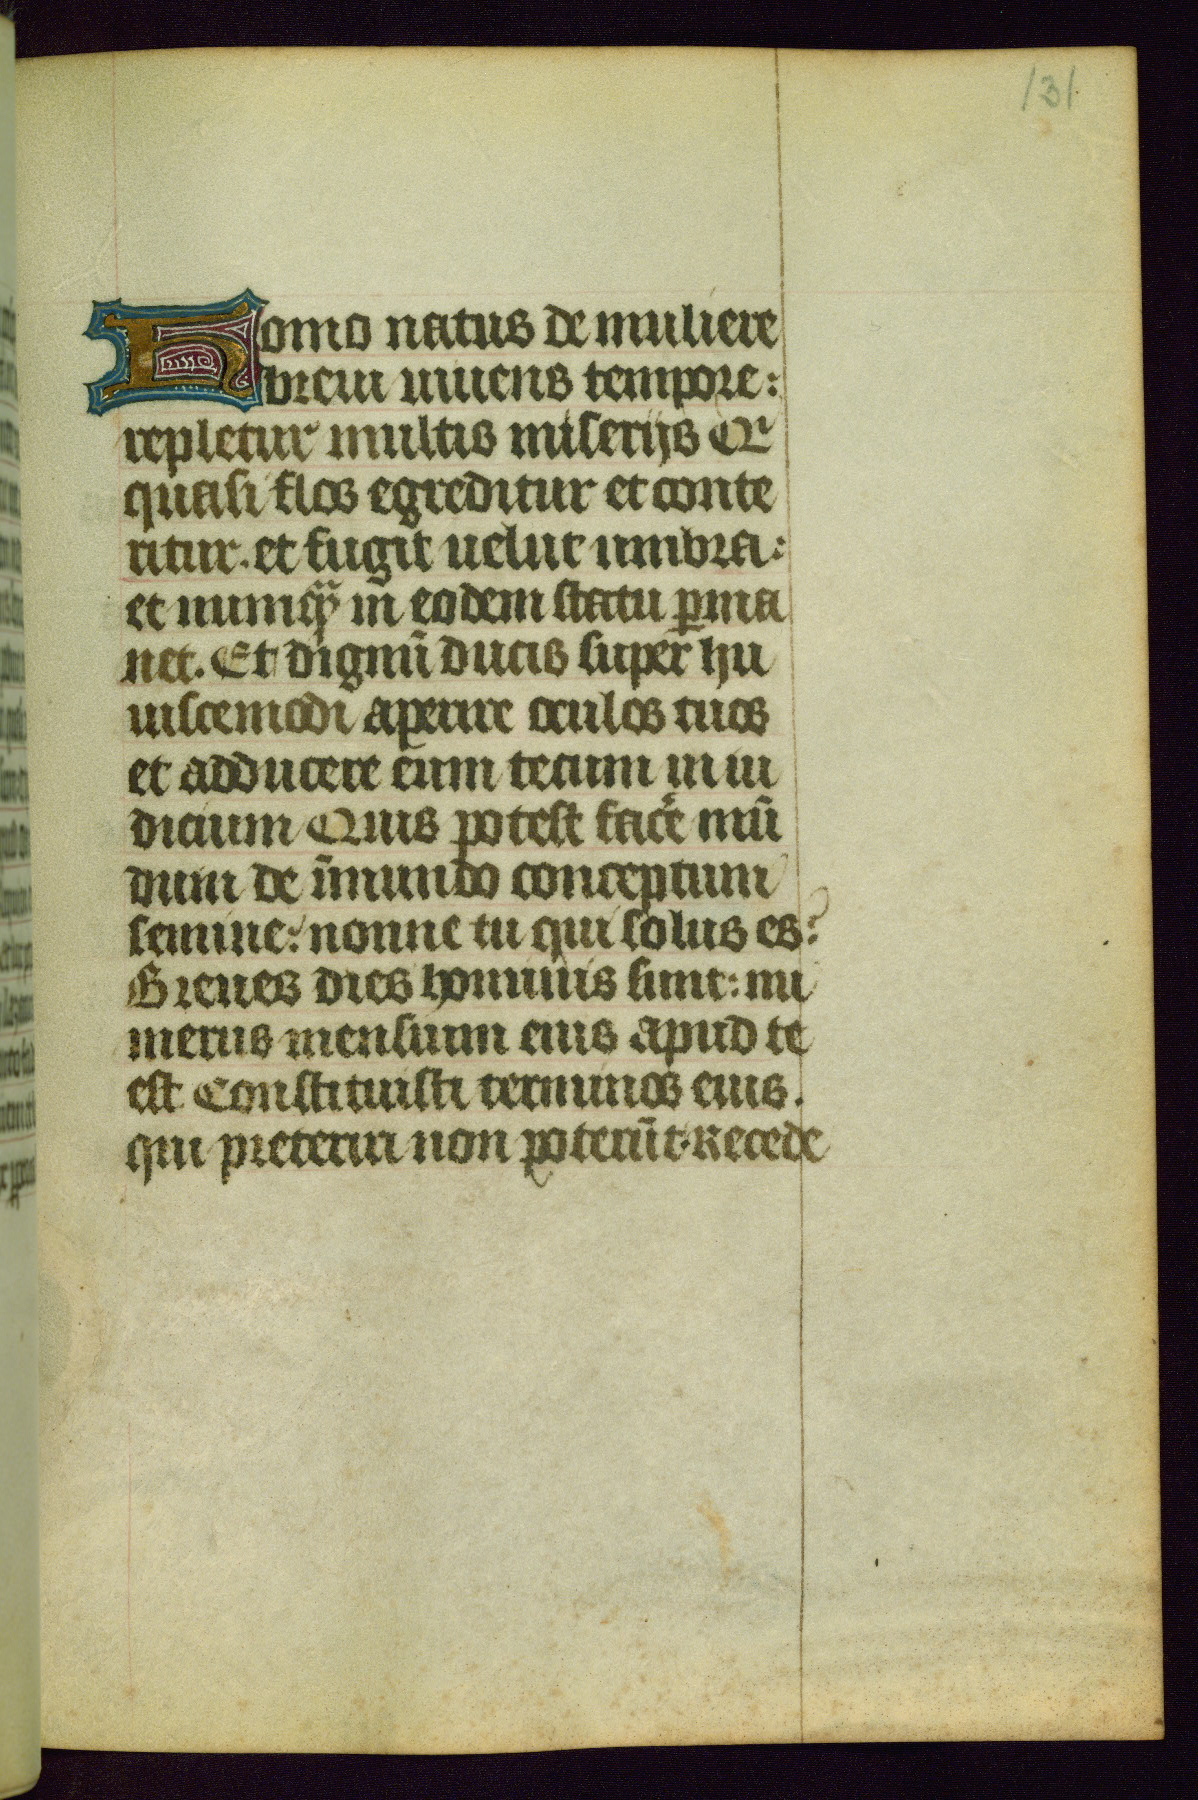 131
Homo natus de muliere
breui uiuens tempore:
repletur multis miserijs Qr
quasi flos egreditur et conte
ritur. et fugit uelut umbra:
et numqȝ in eodem statu ꝑma
net. Et dignū ducis super hu
uiscemodi aperire oculos tuos
et adducere eum tecum in iu
dicium Quis potest facẽ mū
dum de īmundo conceptum
semine: nonne tu qui solus es?
Breues dies hominis sunt: nu
merus mensium eius apud te
est Constituisti terminos eius.
qui preteriri non poterūt. Recede